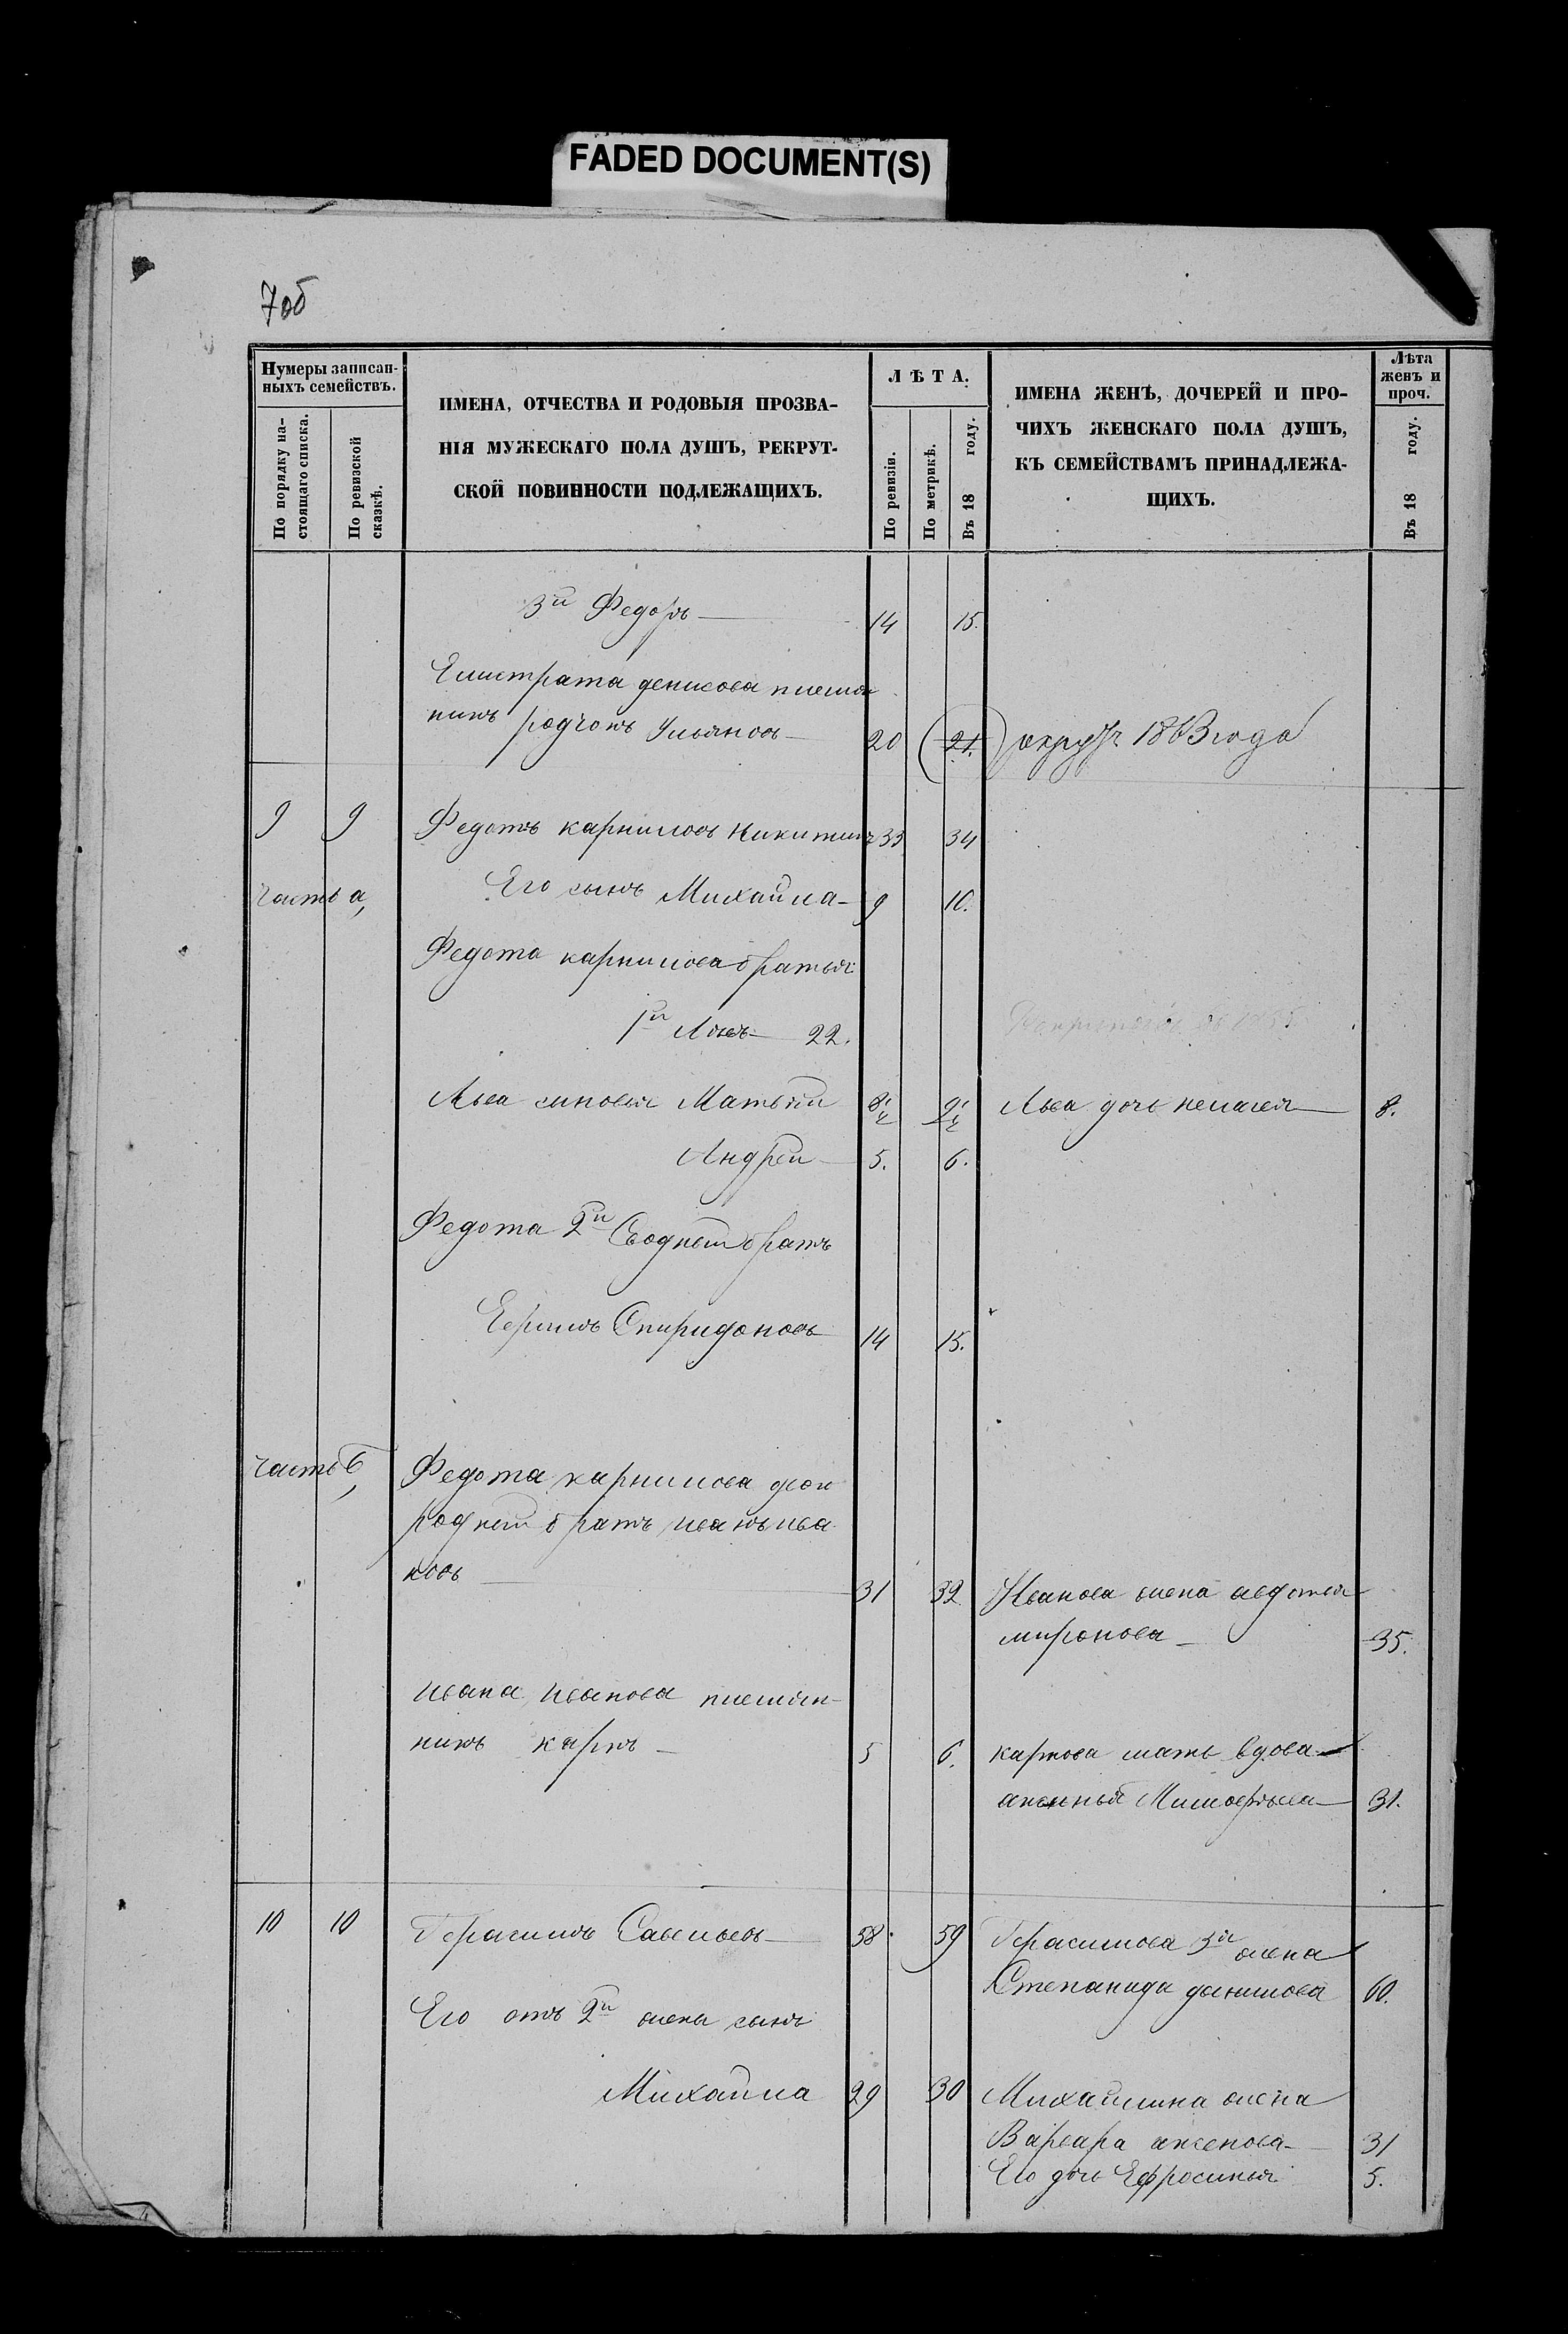 FADED DOCUMENT(S)
7об
Нумеры записан-
ныхъ семействъ.
По порядку на-
стоящаго списка.
По ревизской
сказкѣ.
ИМЕНА, ОТЧЕСТВА И РОДОВЫЯ ПРОЗВА-
НІЯ МУЖЕСКАГО ПОЛА ДУШЪ, РЕКРУТ-
СКОЙ ПОВИННОСТИ ПОДЛЕЖАЩИХЪ.
ЛѢТА.
По ревизіи.
По метрикѣ.
Въ 18 году.
ИМЕНА ЖЕНЪ, ДОЧЕРЕЙ И ПРО-
ЧИХЪ ЖЕНСКАГО ПОЛА ДУШЪ,
КЪ СЕМЕЙСТВАМЪ ПРИНАДЛЕЖА-
ЩИХЪ.
Лѣта
женъ и
проч.
Въ 18 году.
3й Федоръ 14 15.
Елистрата денисова племян
никъ родионъ Ульяновъ 20 (21.) 1863 года
9 9 Федотъ карниловъ никитинъ 33 34
часть а, Его сынъ Михайла 9 10.
Федота карнилова братья
1й Левъ 22.
Льва сыновья Матвѣй 8½ 9½ Льва дочь пелагея 8.
Андрей 5. 6.
Федота 2й Сводный братъ
Ефимъ Спиридоновъ 14 15.
часть б, Федота карнилова двою
родный братъ иванъ ива
новъ 31 32 Иванова жена авдотья
миронова 35.
ивана иванова племян-
никъ карпъ 5 6. карпова мать вдова
аксинья 31.
10 10 Герасимъ Савельевъ 58 59 Герасимова 3я жена
Степанида данилова 60.
Его отъ 2й жены сынъ
Михайла 29 30 Михайлина жена
Варвара аксенова 31
Его дочь Ефросинья 5.